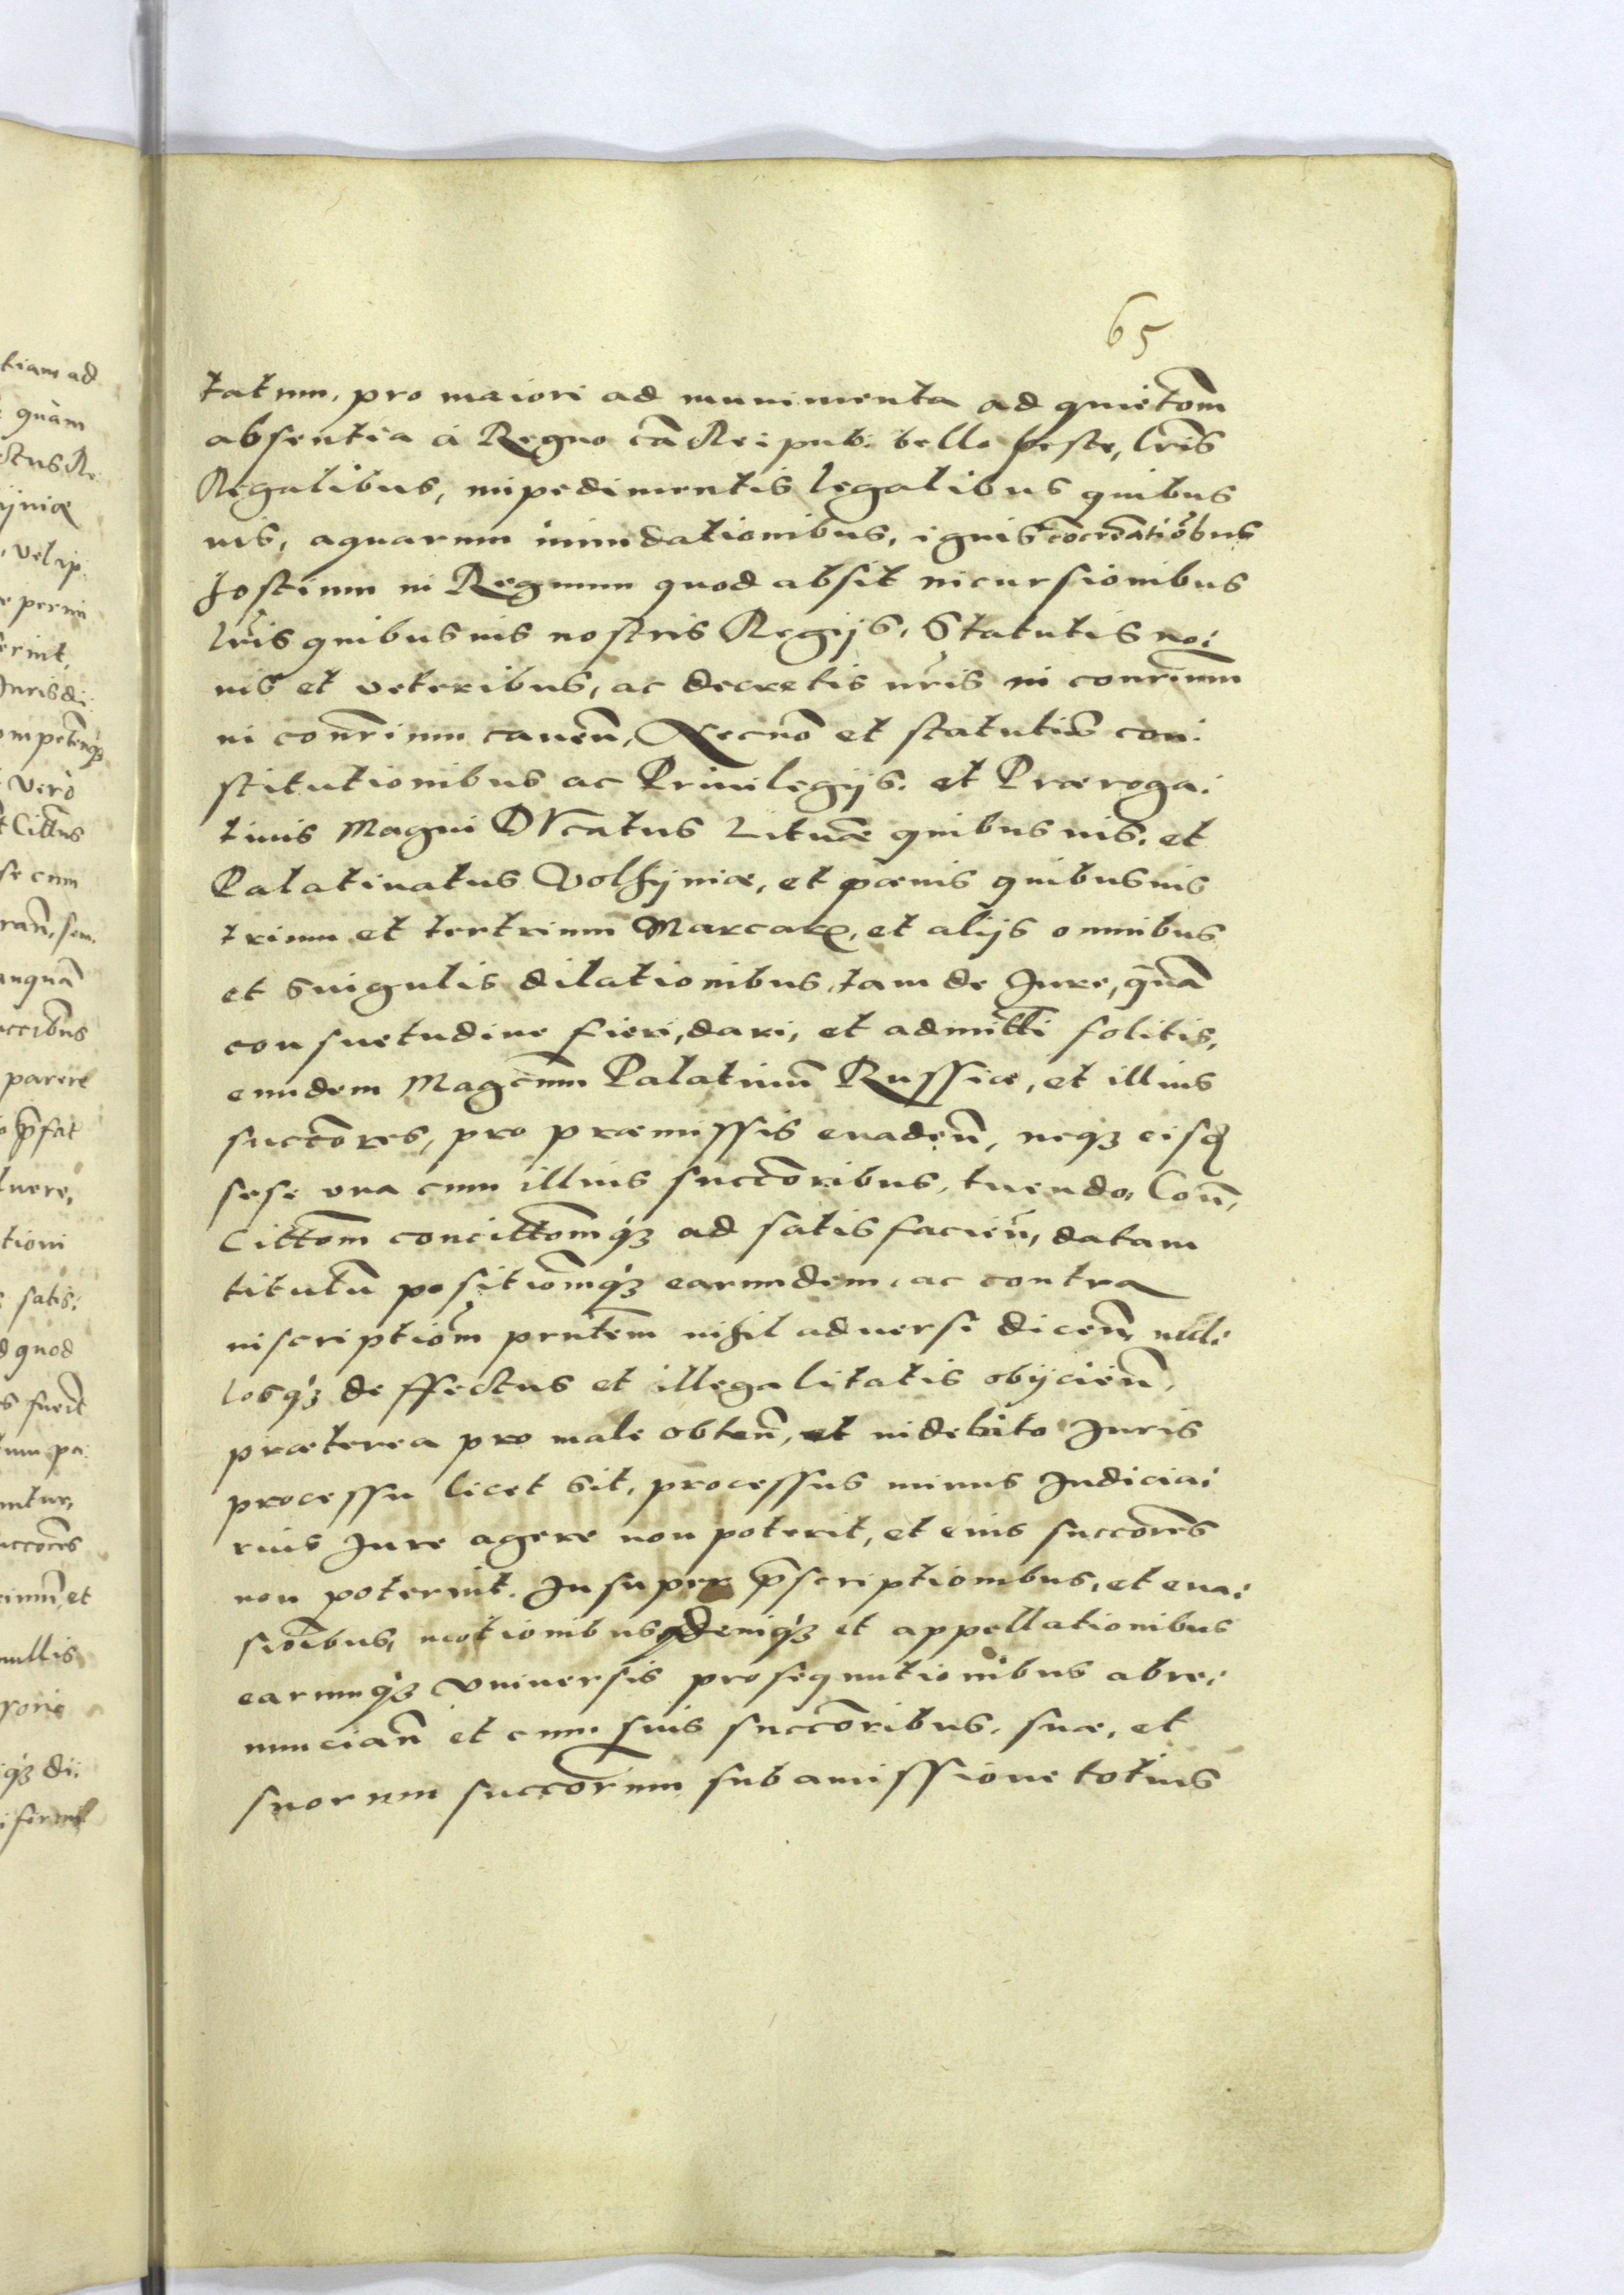 65
tatum, pro maiori ad munimenta ad quietom̃
absentia à Regno cã Reipub: bello peste, lr̃is
Regalibus, impedimentis legalibus quibus
uis, aquarum inundationibus, ignis cõcrẽatiõbus
hostium in Regnum quod absit incursionibus
lr̃is quibusuis nostris Regijs, Statutis no:
uis et veteribus, ac decretis nr̃is in conr̃ium
in conr̃ium cauen̄, Necnõ et statutis con:
stitutionibus ac Priuilegijs. et Præroga:
tiuis Magni DVcatus Lituæ quibusuis. et
Palatinatus Volhyniæ, et pœnis quibusuis
trium et tertrium Marcarꝝ, et alijs omnibus
et singulis dilationibus, tam de Jure, quã
consuetudine fieri, dari, et admitti solitis,
eundem Magcum̃ Palatinũ Russiæ, et illius
succõres, pro præmissis euaden̄, neqȝ eisdẽ
sese una cum illius succõribus, tuendo, Con̄,
Cittom̃ concittom̃qȝ ad satisfacien̄, datam
titulũ positiom̃qȝ earundem, ac contra
inscriptiom̃ prñtem nihil aduersi dicen̄, nul:
losqȝ deffectus et illegalitatis obijcien̄,
præterea pro male obten̄, et indebito Juris
processu licet sit, processus minus Judicia:
rius Jure agere non poterit, et eius succores
non poterint. Insuper p̃scriptionibus, et eua:
siõibus, motionibusqȝ deniqȝ et appellationibus
earumqȝ vniuersis prosequutionibus abre:
nuncian̄ et cum suis succoribus, suæ, et
suorum succorum sub amissione totius